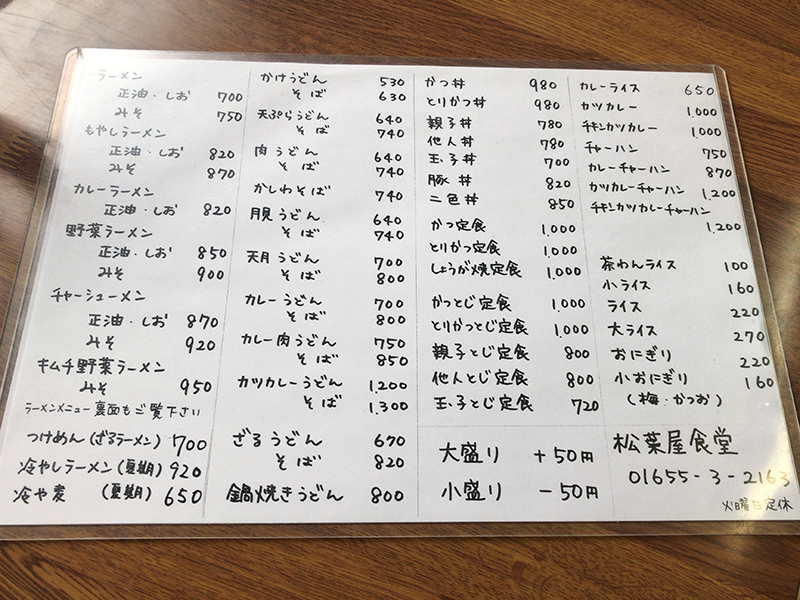 ラーメン
正油・しお 700
みそ 750
もやしラーメン
正油・しお 820
みそ 870
カレーラーメン
正油・しお 820
野菜ラーメン
正油・しお 850
みそ 900
チャーシューメン
正油・しお 870
みそ 920
キムチ野菜ラーメン
みそ 950
ラーメンメニュー裏面もご覧下さい
つけめん(ざるラーメン) 700
冷やしラーメン(夏期) 920
冷や麦 (夏期) 650
かけうどん 530
そば 630
天ぷらうどん 640
そば 740
肉うどん 640
そば 740
かしわそば 740
月見うどん 640
そば 740
天月うどん 700
そば 800
カレーうどん 700
そば 800
カレー肉うどん 750
そば 850
カツカレーうどん 1,200
そば 1,300
ざるうどん 670
そば 820
鍋焼きうどん 800
かつ丼 980
とりかつ丼 980
親子丼 780
他人丼 780
玉子丼 700
豚丼 820
二色丼 850
かつ定食 1,000
とりかつ定食 1,000
しょうが焼定食 1,000
かつとじ定食 1,000
とりかつとじ定食 1,000
親子とじ定食 800
他人とじ定食 800
玉子とじ定食 720
大盛り +50円
小盛り -50円
カレーライス 650
カツカレー 1,000
チキンカツカレー 1,000
チャーハン 750
カレーチャーハン 870
カツカレーチャーハン 1,200
チキンカツカレーチャーハン
1,200
茶わんライス 100
小ライス 160
ライス 220
大ライス 270
おにぎり 220
小おにぎり 160
(梅・かつお)
松葉屋食堂
01655-3-2163
火曜日定休